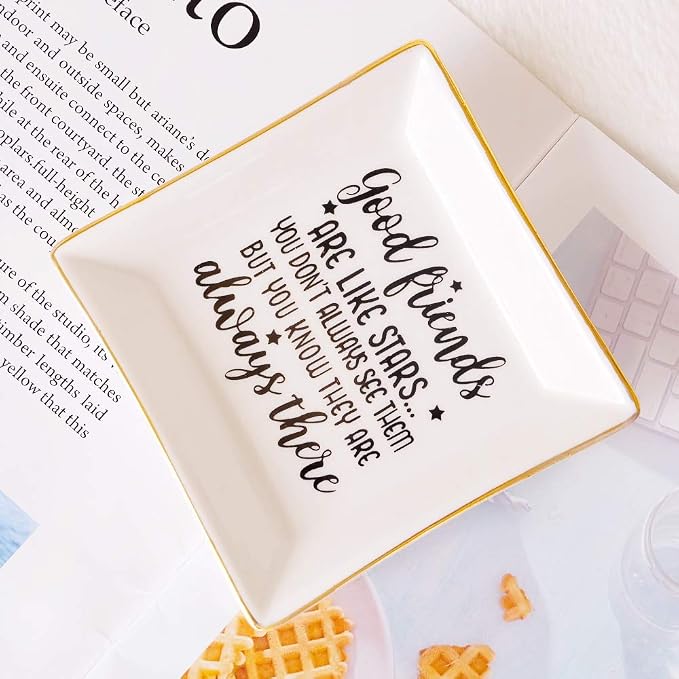 no
eface
print may be small but ariane's d
ndoor and outside spaces, makes
and ensuite connect to the ce
the front courtyard. the slim
while at the rear of the h
oplars.full-height
area and almo
as the cou
ure of the studio, its
m shade that matches
timber lengths laid
yellow that this
Good friends
ARE LIKE STARS...
YOU DON'T ALWAYS SEE THEM
BUT YOU KNOW THEY ARE
always there